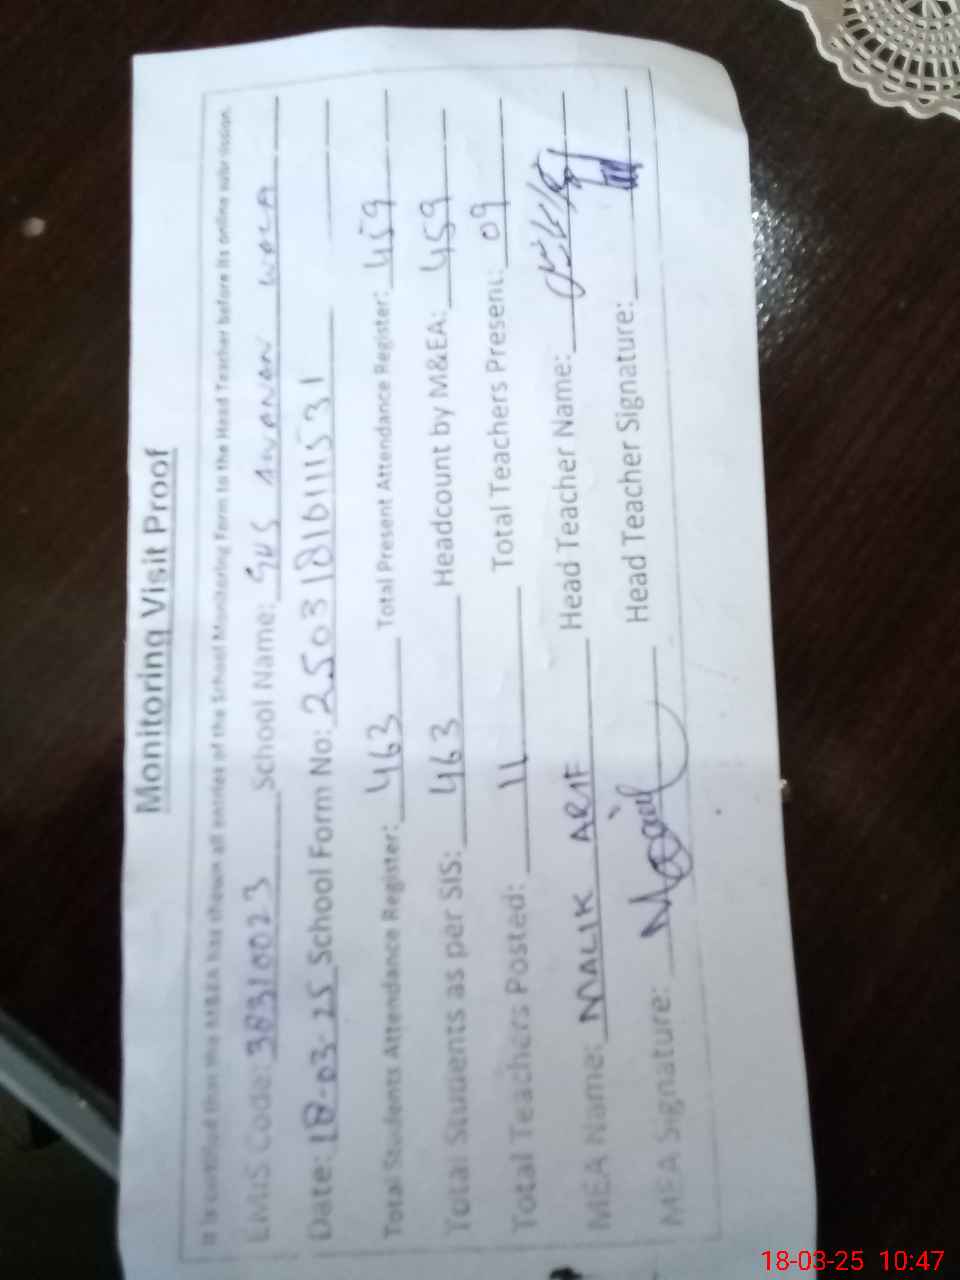 Monitoring Visit Proof
It is certified that the M&EA has shown all entries of the School Monitoring Form to the Head Teacher before its online submission.
EMIS Code: 38310023 School Name: GHS AWANAN WALA
Date: 18-03-25 School Form No: 2503181011531
Total Students Attendance Register: 463 Total Present Attendance Register: 459
Total Students as per SIS: 463 Headcount by M&EA: 459
Total Teachers Posted: 11 Total Teachers Present: 09
MEA Name: MALIK ARIF Head Teacher Name:
MEA Signature: Head Teacher Signature:
18-03-25 10:47